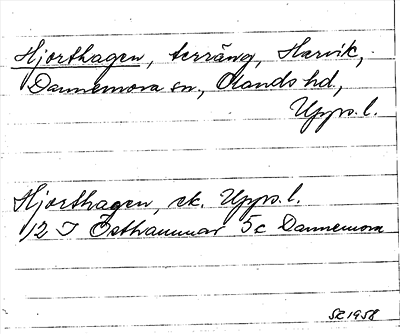 Hjorthagen, terräng, Harvik,
Dannemora sn., Olands hd,
Upps. l.
Hjorthagen, ek. Upps. l.
12 I Östhammar 5c Dannemora
SE 1958